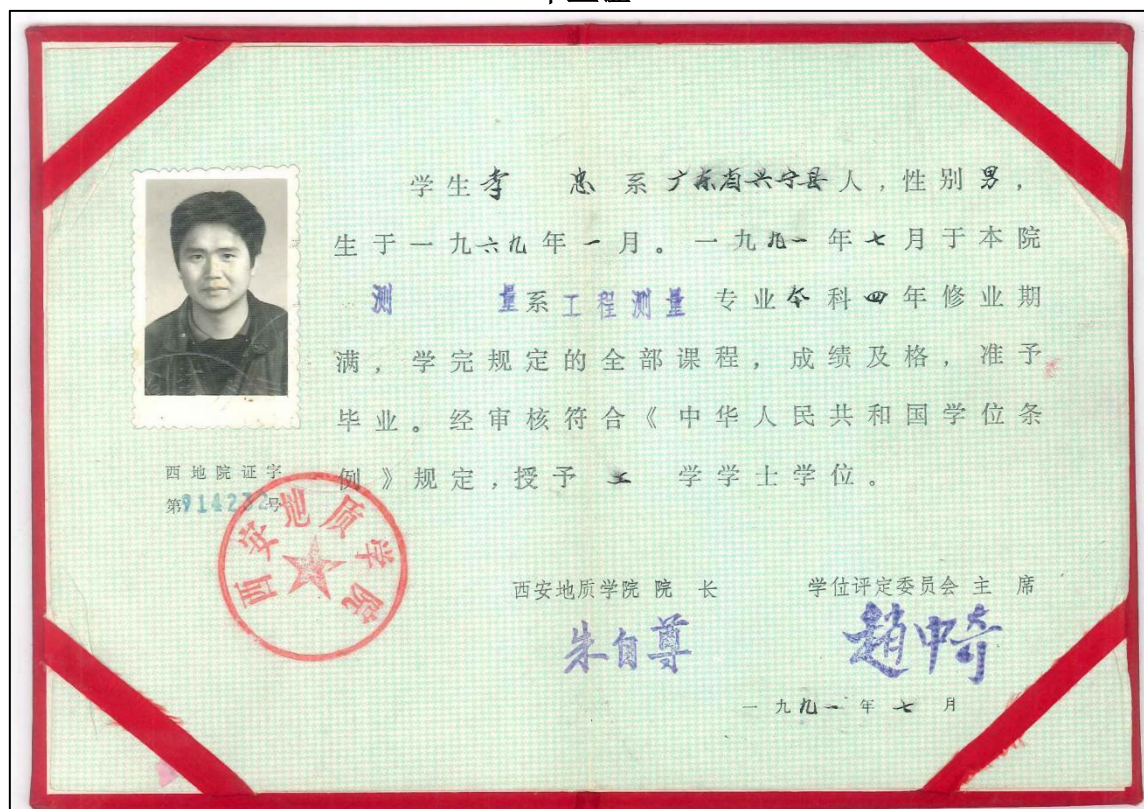 学生李 忠 系广东省兴宁县人,性别男,
生于一九六九年一月。一九九一年七月于本院
测 量系工程测量 专业本科四年修业期
满,学完规定的全部课程,成绩及格,准予
毕业。经审核符合《中华人民共和国学位条
例》规定,授予 工 学学士学位。
西地院证字
第914232号
西安地质学院
西安地质学院 院 长 学位评定委员会 主 席
朱自尊 趙中奇
一九九一年七月